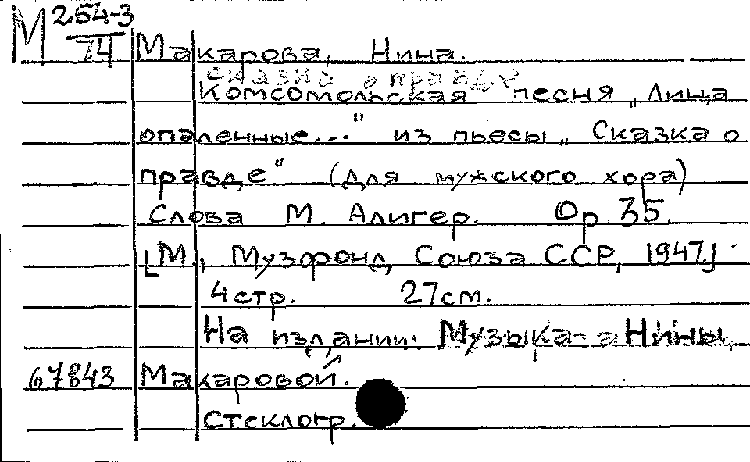 М 254-3
74
Макарова, Нина.
Сказка о правде
Комсомольская песня „Лица
опаленные..." из пьесы „Сказка о
правде" (для мужского хора)
Слова М. Алигер. Ор 35.
[М., Музфонд Союза ССР, 1947]
4 стр. 27 см.
На издании: Музыка Нины
67843 Макаровой.
Стеклогр.